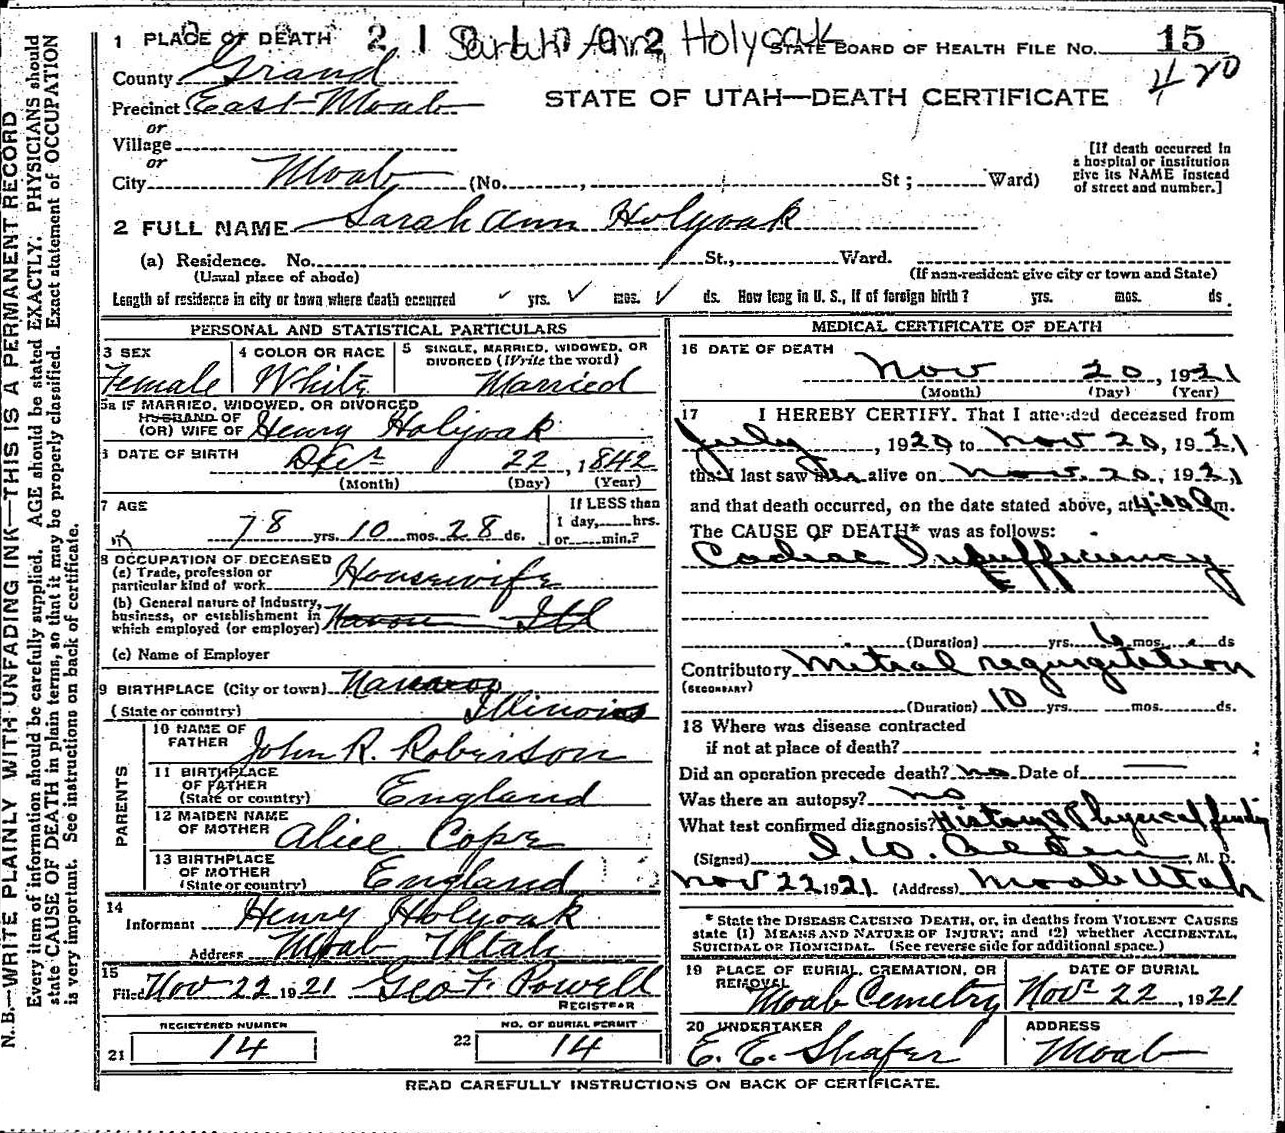 N.B.—WRITE PLAINLY WITH UNFADING INK—THIS IS A PERMANENT RECORD
Every item of information should be carefully supplied. AGE should be stated EXACTLY. PHYSICIANS should
state CAUSE OF DEATH in plain terms, so that it may be properly classified. Exact statement of OCCUPATION
is very important. See instructions on back of certificate.
1 PLACE OF DEATH Sarah Ann Holyoak STATE BOARD OF HEALTH FILE NO. 15
420
County Grand
Precinct East Moab
STATE OF UTAH—DEATH CERTIFICATE
or
Village
or
City Moab (No. , St ; Ward)
[If death occurred in
a hospital or institution
give its NAME instead
of street and number.]
2 FULL NAME Sarah Ann Holyoak
(a) Residence. No. St., Ward.
(Usual place of abode) (If non-resident give city or town and State)
Length of residence in city or town where death occurred yrs. mos. ds. How long in U. S., if of foreign birth? yrs. mos. ds.
PERSONAL AND STATISTICAL PARTICULARS
3 SEX
Female
4 COLOR OR RACE
White
5 SINGLE, MARRIED, WIDOWED, OR
DIVORCED (Write the word)
Married
5a IF MARRIED, WIDOWED, OR DIVORCED
HUSBAND OF
(OR) WIFE OF Henry Holyoak
6 DATE OF BIRTH Dec 22, 1842
(Month) (Day) (Year)
7 AGE
78 yrs. 10 mos. 28 ds.
If LESS than
1 day, hrs.
or min.?
8 OCCUPATION OF DECEASED
(a) Trade, profession or
particular kind of work Housewife
(b) General nature of Industry,
business, or establishment in
which employed (or employer)
(c) Name of Employer
9 BIRTHPLACE (City or town) Nauvoo
(State or country) Illinois
PARENTS
10 NAME OF
FATHER John R. Robinson
11 BIRTHPLACE
OF FATHER
(State or country) England
12 MAIDEN NAME
OF MOTHER Alice Cope
13 BIRTHPLACE
OF MOTHER
(State or country) England
14
Informant Henry Holyoak
Address Moab Utah
15
Filed Nov 22 1921 Geo F. Powell
REGISTRAR
REGISTERED NUMBER
21 14
NO. OF BURIAL PERMIT
22 14
MEDICAL CERTIFICATE OF DEATH
16 DATE OF DEATH
Nov 20, 1921
(Month) (Day) (Year)
17 I HEREBY CERTIFY, That I attended deceased from
July , 1920 to Nov 20, 1921
that I last saw her alive on Nov. 20, 1921,
and that death occurred, on the date stated above, at m.
The CAUSE OF DEATH* was as follows:
Cadiac Insufficiency
(Duration) yrs. 6 mos. ds
Contributory Mitral regurgitation
(SECONDARY)
(Duration) 10 yrs. mos. ds.
18 Where was disease contracted
if not at place of death?
Did an operation precede death? no Date of
Was there an autopsy? no
What test confirmed diagnosis? History & Physical finding
(Signed) I. W. Allen M. D.
Nov 22 1921 (Address) Moab Utah
* State the DISEASE CAUSING DEATH, or, in deaths from VIOLENT CAUSES
state (1) MEANS AND NATURE OF INJURY; and (2) whether ACCIDENTAL,
SUICIDAL OR HOMICIDAL. (See reverse side for additional space.)
19 PLACE OF BURIAL, CREMATION, OR
REMOVAL
Moab Cemetry
DATE OF BURIAL
Nov 22, 1921
20 UNDERTAKER
E. E. Shafer
ADDRESS
Moab
READ CAREFULLY INSTRUCTIONS ON BACK OF CERTIFICATE.